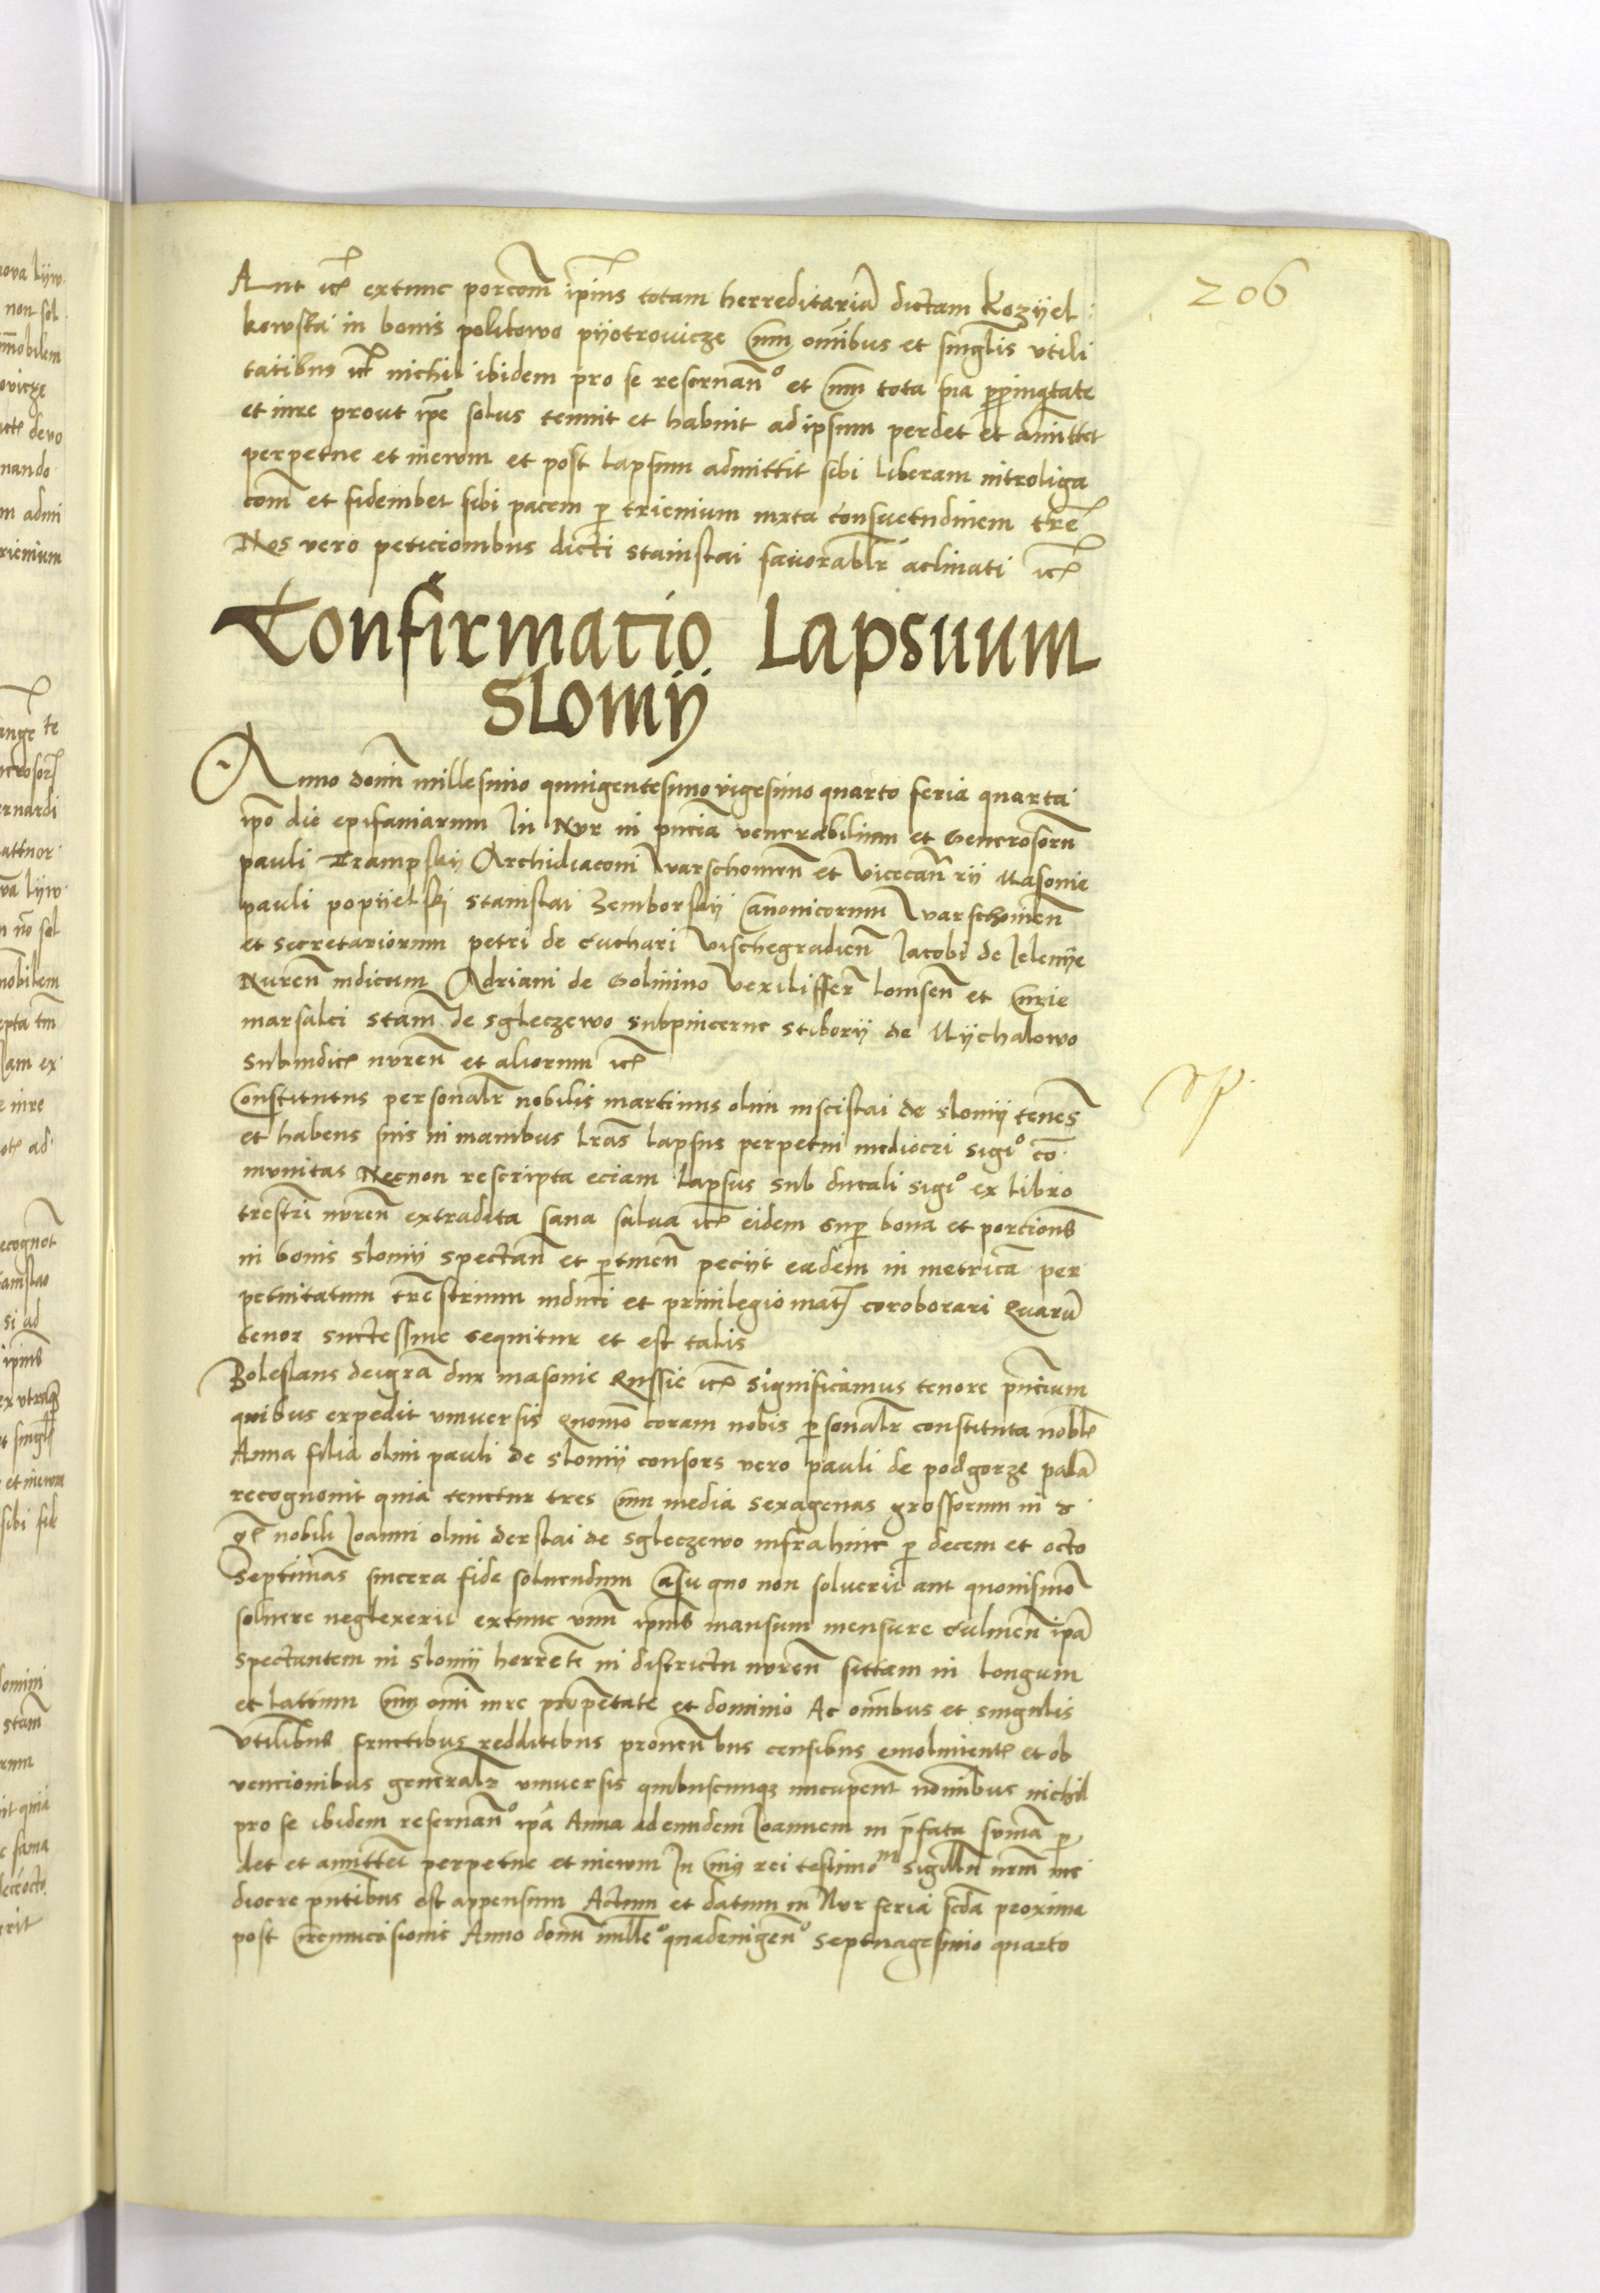 206
Aut etc extunc porcõm ip̃ius totam herreditariã dictam Kozÿel
kowska in bonis politowo pÿotrovicze Cum om̃ibus et singl̃is vtili
tatibus etc nichil ibidem pro se reseruan° et Cum tota sua p̱pinq̃tate
et iure prout ip̃e solus tenuit et habuit ad ipsum perdet et amittet
perpetue et in ewm et post lapsum admittit sibi liberam intröliga
com̃ et fideiubet sibi pacem p̱ trienium iuxta consuetudinem trẽ
Nos vero peticionibus dicti stanislai fauorabl̃r aclinati etc
Confirmatio Lapsuum
Slomÿ
Anno domĩ millesimo quingentesimo vigesimo quarto feria quarta
ip̃o die epifaniarum In Nur in pñcia venerabilium et Generosorũ
pauli Archidiaconi Warschouieñ et Vicecañrii Masouie
pauli popiielski stanislai Zemborskÿ Canonicorum Warschouieñ
et Secretariorum petri de Cuchari Vischegradieñ Jacobi de Jelenÿe
Nureñ iudicum Adriani de Golmino Vexilifferi lomseñ et Curie
marsalci stañ de sgleczewo subpincerne stiborÿ de Mÿchalowo
Subiudicẽ nureñ et aliorum etc
Constitutus personal̃r nobilis martinus olim de slomÿ teneñs
et habens suis in manibus l̃ras lapsus perpetui mediocri sigi° co
munitas Necnon rescripta eciam lapsus sub ducali sigi° ex libro
tres̃tri nureñ extradita sana salua etc eidem sup̱ bona et porcioñs
in bonis slomÿ spectañ et p̱tineñ peciÿt eadem in metricã per
petuitatum trẽstrium induci et priuilegio mat̃ coroborari Quarũ
tenor suctessiue sequitur et est talis
Boleslaus dei grã dux masouie Russie etc Significamus tenore pñcium
quibus expedit vniuersis Quomo᷑ coram nobis p̱sonal̃r constituta nobl̃
Anna filia olim pauli de slomÿ consors vero pauli de podgorze palã
recognouit quia tenetur tres Cum media sexagenas grossorum in
nobili Joanni olim derslai de sgleczewo infra hinc p̱ decem et octo
Septimãs sincera fide soluendum Casu quo non soluerit aut quouismo᷑
soluere neglexerit extunc vnũ ip̃ius mansum mensure Culmeñ ip̃ã
spectantem in slomÿ herret̃e in districtu nureñ sittam in longum
et latum Cum om̃i iure propetate et dominio Ac om̃ibus et singulis
Vtilibus fructibus redditibus prouenbus censibus emolimentẽ et ob
vencionibus generalr vniuersis quibuscunqꝫ nũcupent nõmibus nichil
pro se ibidem reseruan° ip̃ã Anna ad eundem Joannem in p̃fata sum̃a p̱
det et amittet perpetue et in ewm In Cuius rei testimom Sigillũ nrm̃ me
diocre pñtibus est appensum Actum et datum in Nur feria scda proxima
post Circumcisionis Anno domĩ mill̃e° quadenigen° Septuagesimo quarto